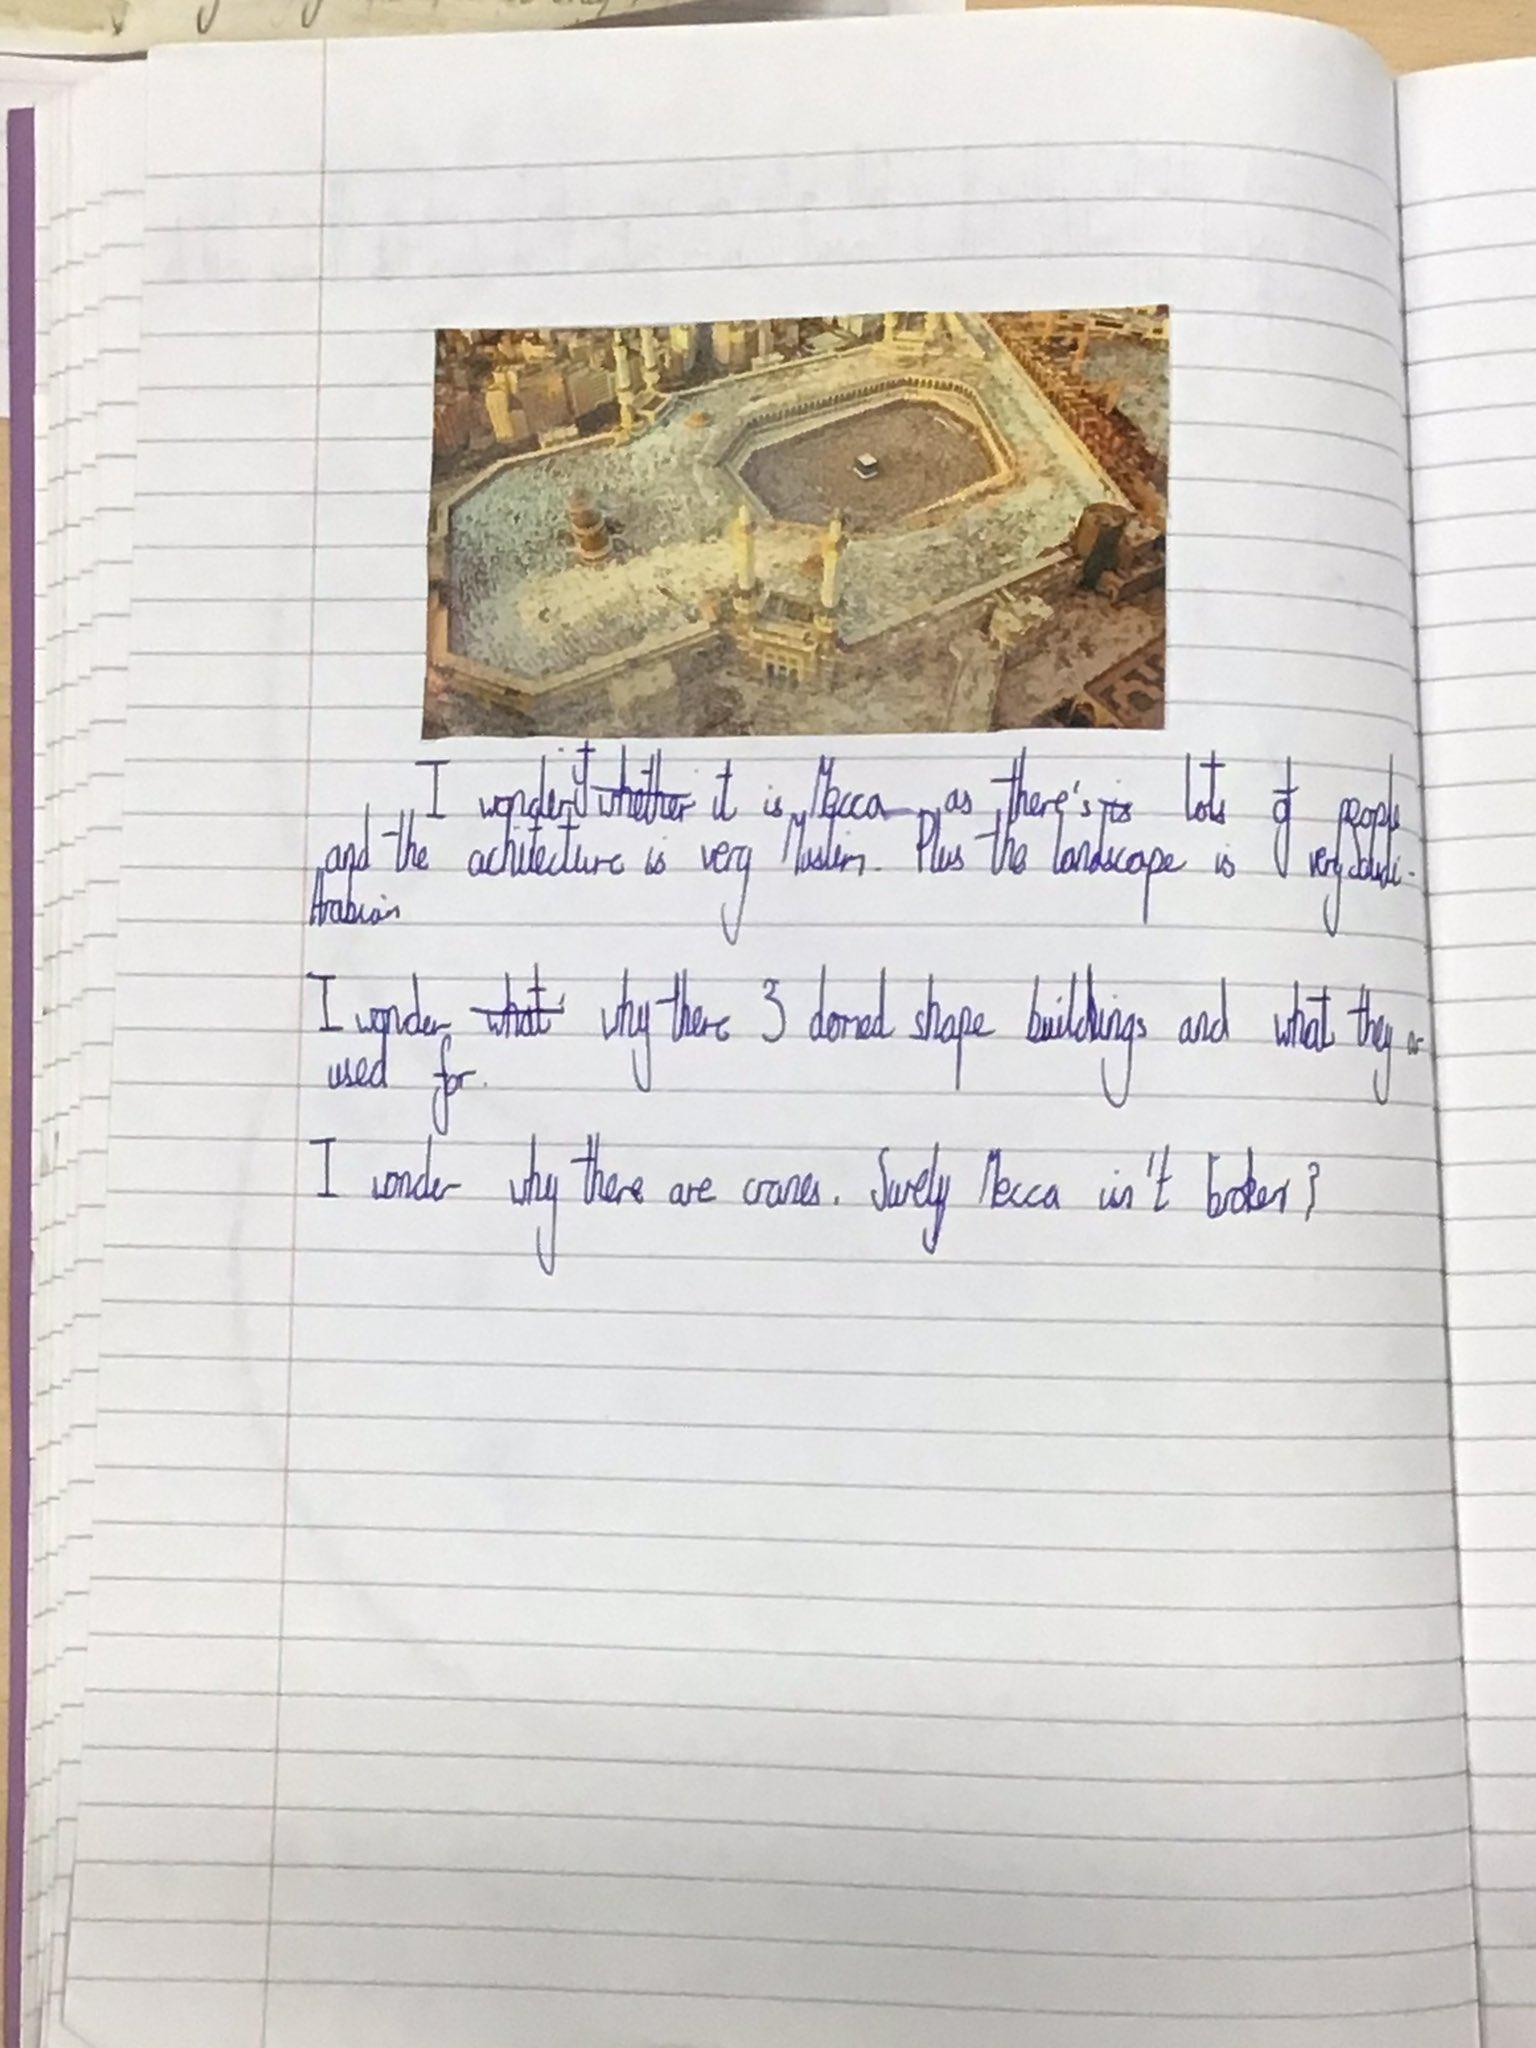 I wonder if whether it is Mecca as there's is lots of people
and the achitecture is very Muslim. Plus the landscape is very Saudi-
Arabian
I wonder what why there 3 domed shape buildings and what they
used for.
I wonder why there are cranes. Surely Mecca isn't broken?